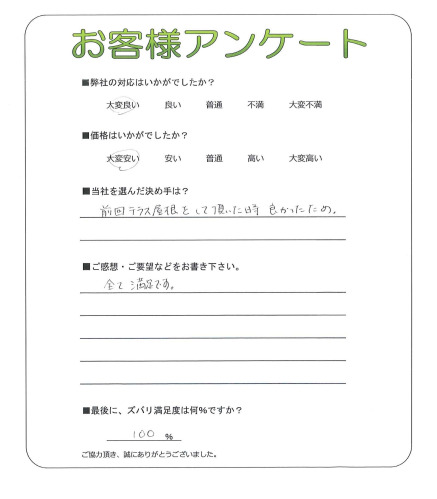 お客様アンケート
■弊社の対応はいかがでしたか？
大変良い 良い 普通 不満 大変不満
■価格はいかがでしたか？
大変安い 安い 普通 高い 大変高い
■当社を選んだ決め手は？
前回テラス屋根をして頂いた時 良かったため。
■ご感想・ご要望などをお書き下さい。
全て満足です。
■最後に、ズバリ満足度は何％ですか？
100 ％
ご協力頂き、誠にありがとうございました。